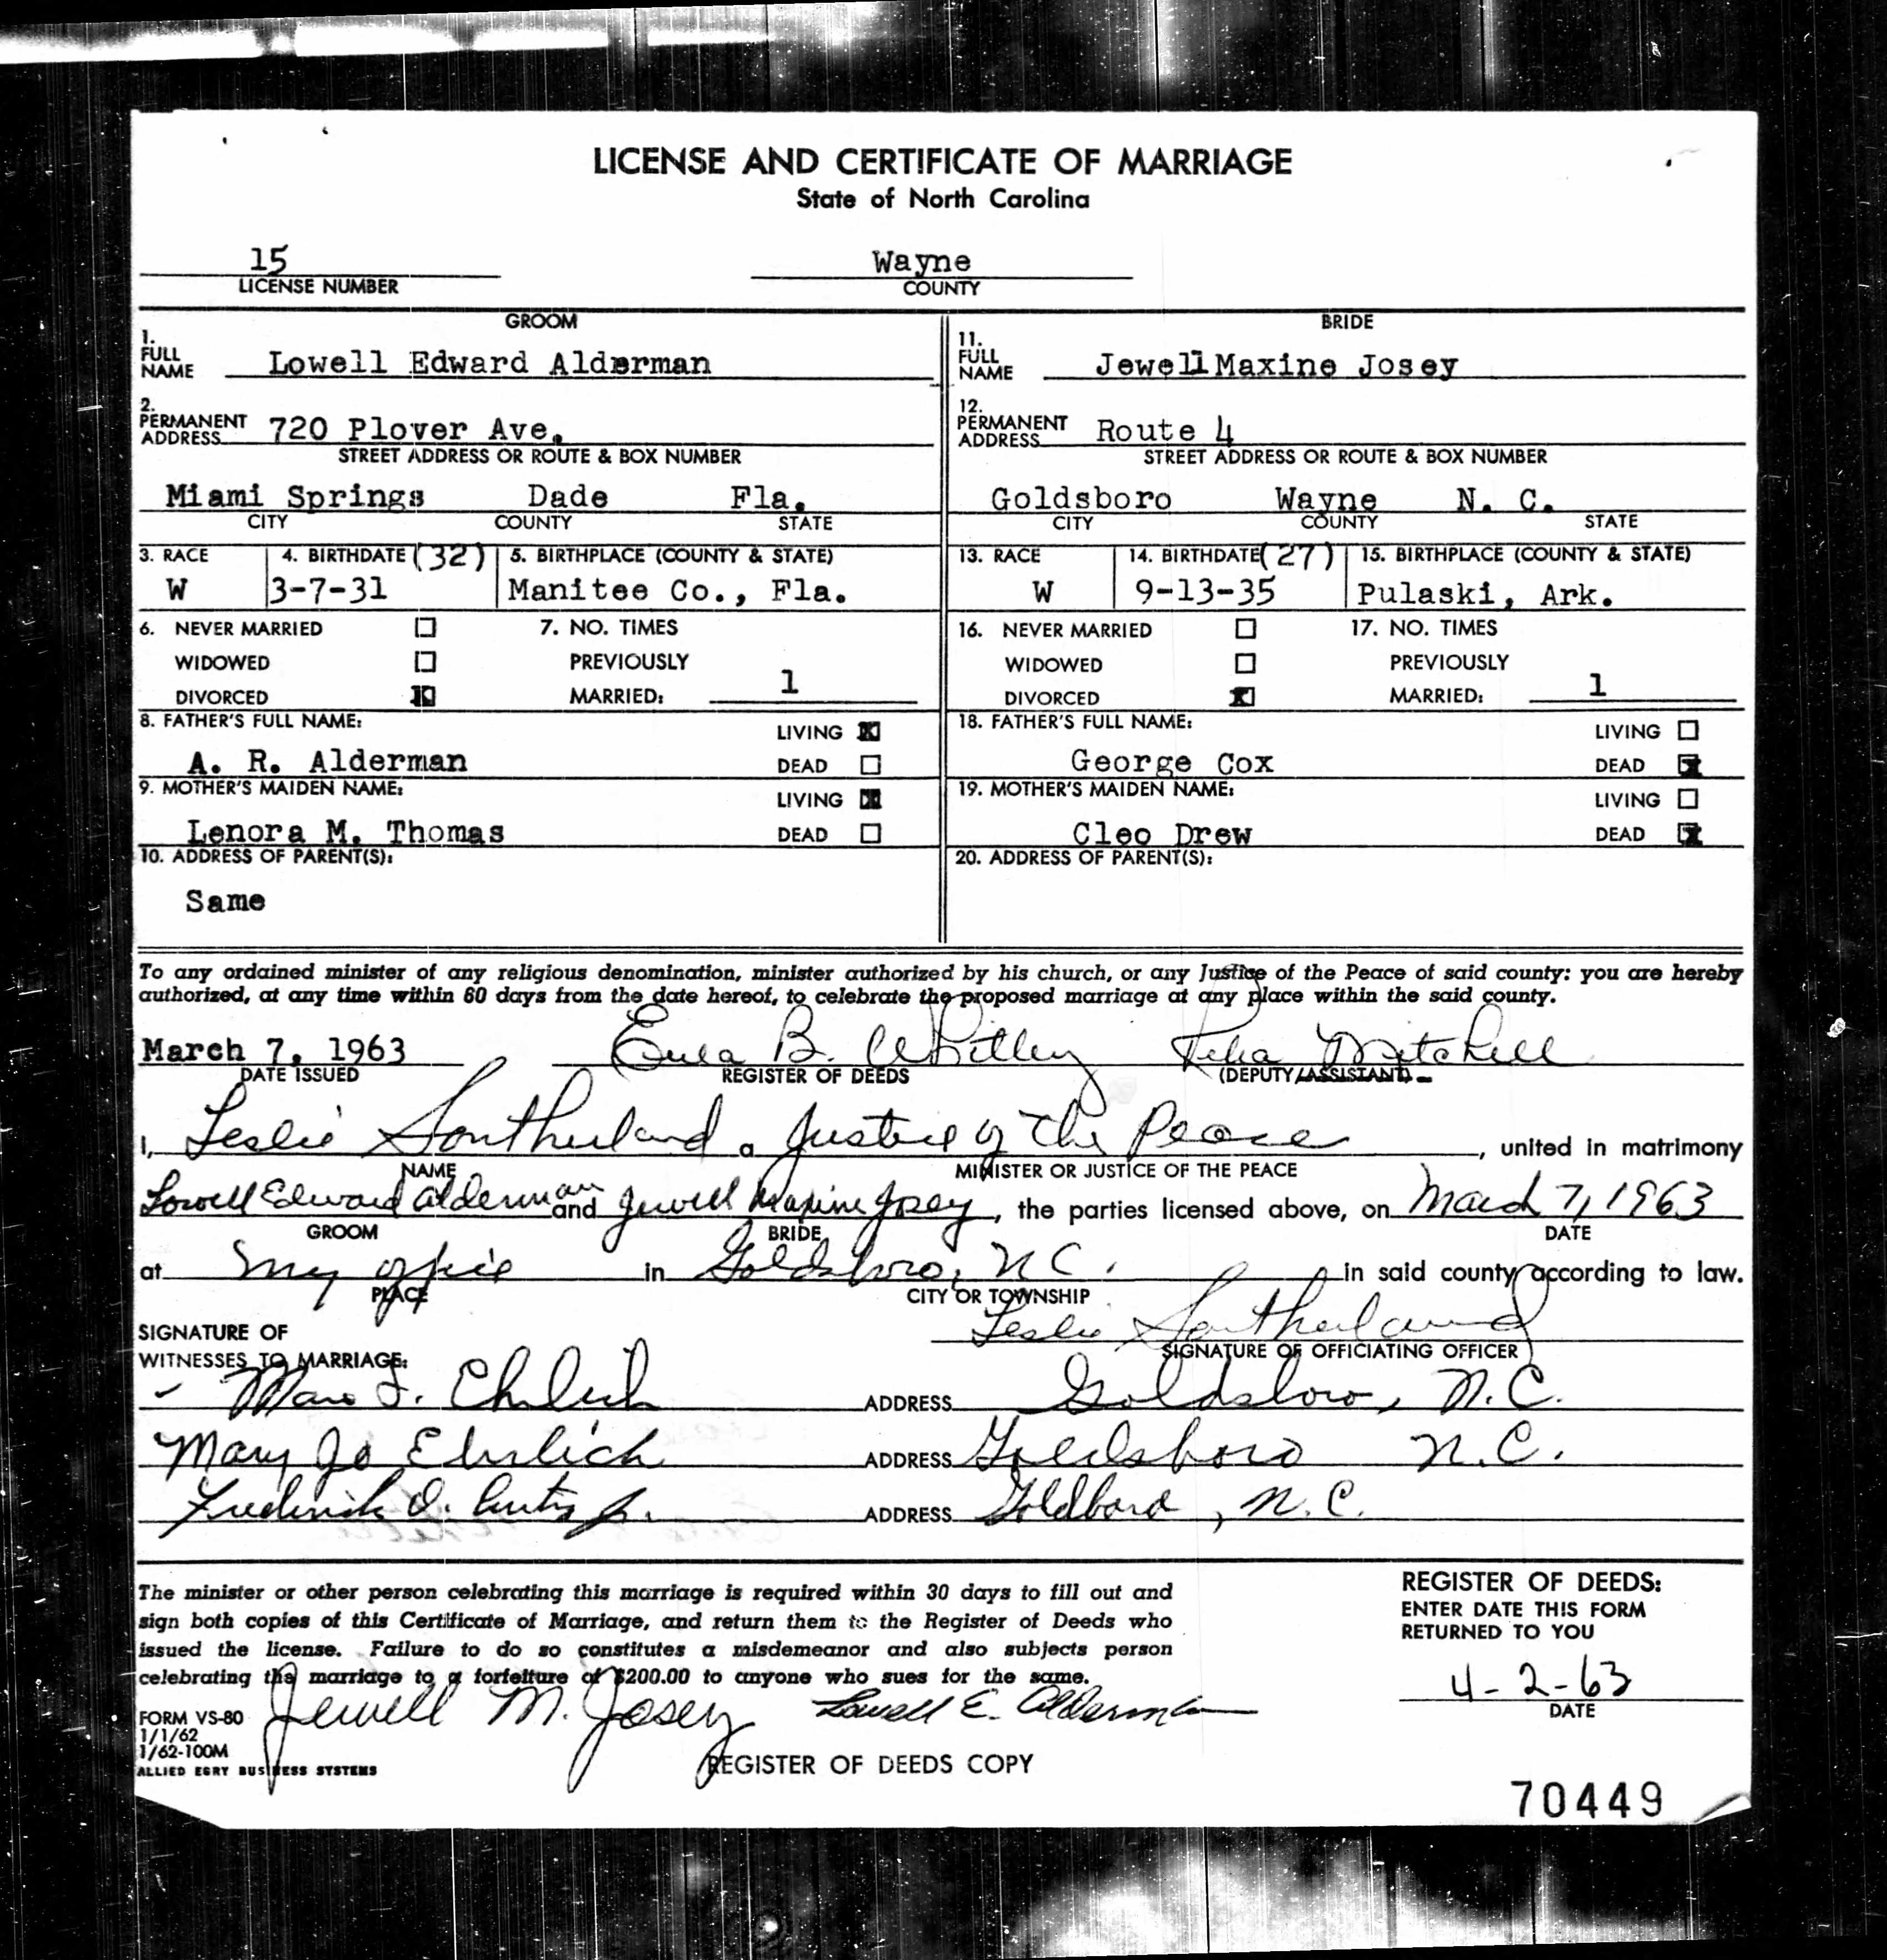 LICENSE AND CERTIFICATE OF MARRIAGE
State of North Carolina
15 Wayne
LICENSE NUMBER COUNTY
GROOM BRIDE
1. FULL NAME Lowell Edward Alderman
11. FULL NAME Jewell Maxine Josey
2. PERMANENT ADDRESS 720 Plover Ave.
12. PERMANENT ADDRESS Route 4
STREET ADDRESS OR ROUTE & BOX NUMBER STREET ADDRESS OR ROUTE & BOX NUMBER
Miami Springs Dade Fla. Goldsboro Wayne N. C.
CITY COUNTY STATE CITY COUNTY STATE
3. RACE 4. BIRTHDATE (32) 5. BIRTHPLACE (COUNTY & STATE) 13. RACE 14. BIRTHDATE (27) 15. BIRTHPLACE (COUNTY & STATE)
W 3-7-31 Manitee Co., Fla. W 9-13-35 Pulaski, Ark.
6. NEVER MARRIED 7. NO. TIMES 16. NEVER MARRIED 17. NO. TIMES
WIDOWED PREVIOUSLY WIDOWED PREVIOUSLY
DIVORCED MARRIED: 1 DIVORCED MARRIED: 1
8. FATHER'S FULL NAME: LIVING 18. FATHER'S FULL NAME: LIVING
A. R. Alderman DEAD George Cox DEAD
9. MOTHER'S MAIDEN NAME: LIVING 19. MOTHER'S MAIDEN NAME: LIVING
Lenora M. Thomas DEAD Cleo Drew DEAD
10. ADDRESS OF PARENT(S): 20. ADDRESS OF PARENT(S):
Same
To any ordained minister of any religious denomination, minister authorized by his church, or any Justice of the Peace of said county: you are hereby
authorized, at any time within 60 days from the date hereof, to celebrate the proposed marriage at any place within the said county.
March 7, 1963 Eula B. Whitley Mitchell
DATE ISSUED REGISTER OF DEEDS (DEPUTY/ASSISTANT)
I, Leslie Southerland a Justice of The Peace, united in matrimony
NAME MINISTER OR JUSTICE OF THE PEACE
Lowell Edward Alderman and Jewell Maxine Josey, the parties licensed above, on March 7, 1963
GROOM BRIDE DATE
at My office in Goldsboro, N C. in said county according to law.
PLACE CITY OR TOWNSHIP
Leslie Southerland
SIGNATURE OF
WITNESSES TO MARRIAGE: SIGNATURE OF OFFICIATING OFFICER
Ehrlich ADDRESS Goldsboro, N.C.
Mary Jo Ehrlich ADDRESS Goldsboro N.C.
Frederick O. Jr. ADDRESS Goldboro, N.C.
The minister or other person celebrating this marriage is required within 30 days to fill out and
sign both copies of this Certificate of Marriage, and return them to the Register of Deeds who
issued the license. Failure to do so constitutes a misdemeanor and also subjects person
celebrating the marriage to a forfeiture of $200.00 to anyone who sues for the same.
REGISTER OF DEEDS:
ENTER DATE THIS FORM
RETURNED TO YOU
4-2-63
DATE
Jewell M. Josey Lowell E. Alderman
FORM VS-80
1/1/62
1/62-100M
ALLIED EGRY BUSINESS SYSTEMS
REGISTER OF DEEDS COPY
70449